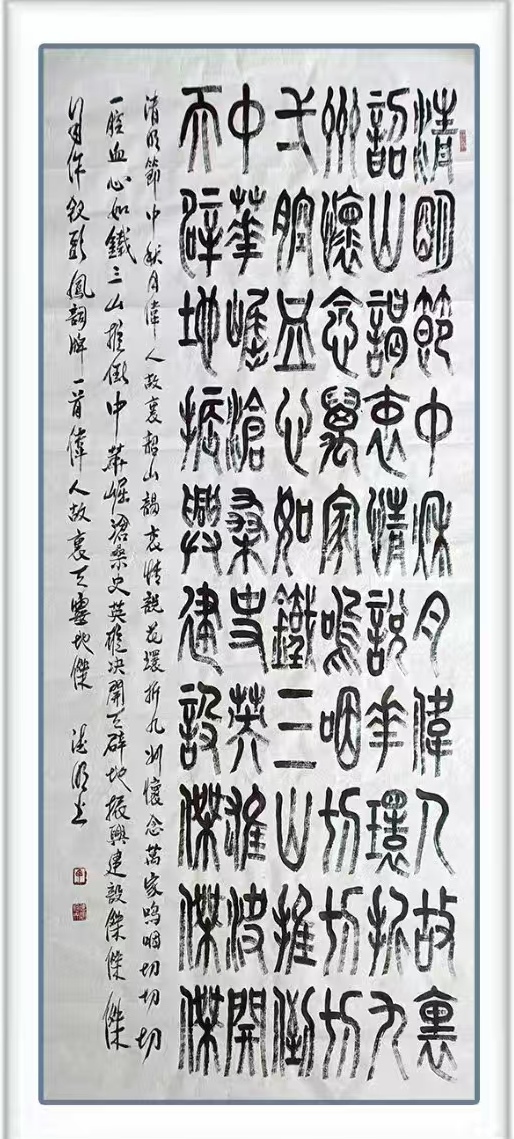 清明節中秋月偉人故裏
韶山謁衷情説華環折九
州懷念萬家嗚咽切切切
弌腔血心如鐵三山推倒
中華崛滄桑史英雄決開
天辟地振興建設傑傑傑
清明節中秋月偉人故裏韶山謁衷情説花環折九州懷念萬家嗚咽切切切
一腔血心如鐵三山推倒中華崛滄桑史英雄決開天辟地振興建設傑傑傑
自作釵頭鳳詞牌一首偉人故裏天靈地傑